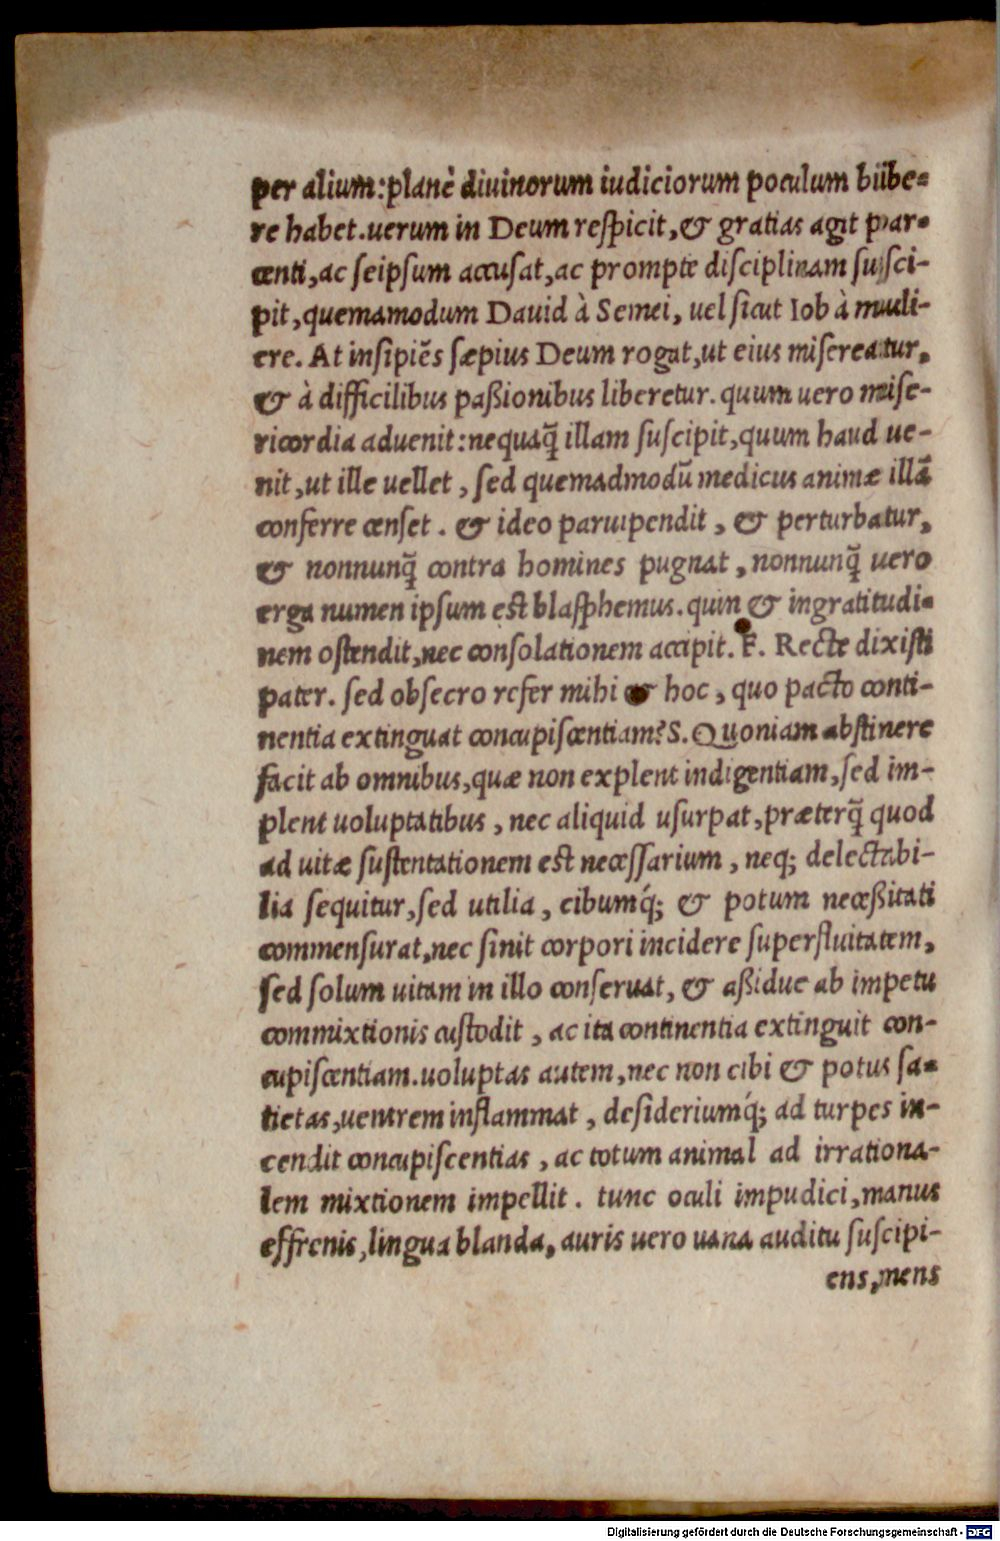 per alium:planè diuinorum iudiciorum poculum bibe-
re habet.uerum in Deum respicit,& gratias agit par-
centi,ac seipsum accusat,ac prompte disciplinam susci-
pit,quemamodum Dauid à Semei, uel sicut Iob à muli-
ere. At insipiẽs sæpius Deum rogat,ut eius misereatur,
& à difficilibus paßionibus liberetur. quum uero mise-
ricordia aduenit:nequaq̃ illam suscipit,quum haud ue-
nit,ut ille uellet, sed quemadmodũ medicus animæ illã
conferre censet. & ideo paruipendit, & perturbatur,
& nonnunq̃ contra homines pugnat, nonnunq̃ uero
erga numen ipsum est blasphemus. quin & ingratitudi-
nem ostendit,nec consolationem accipit. F. Recte dixisti
pater. sed obsecro refer mihi & hoc, quo pacto conti-
nentia extinguat concupiscentiam? S. Quoniam abstinere
facit ab omnibus,quæ non explent indigentiam,sed im-
plent uoluptatibus, nec aliquid usurpat,præterq̃ quod
ad uitæ sustentationem est necessarium, neq; delectabi-
lia sequitur,sed utilia, cibumq́; & potum neceßitati
commensurat,nec sinit corpori incidere superfluitatem,
sed solum uitam in illo conseruat, & aßidue ab impetu
commixtionis custodit, ac ita continentia extinguit con-
cupiscentiam.uoluptas autem,nec non cibi & potus sa-
tietas,uentrem inflammat, desideriumq́; ad turpes in-
cendit concupiscentias, ac totum animal ad irrationa-
lem mixtionem impellit. tunc oculi impudici,manus
effrenis,lingua blanda, auris uero uana auditu suscipi-
ens,mens
Digitalisierung gefördert durch die Deutsche Forschungsgemeinschaft - DFG